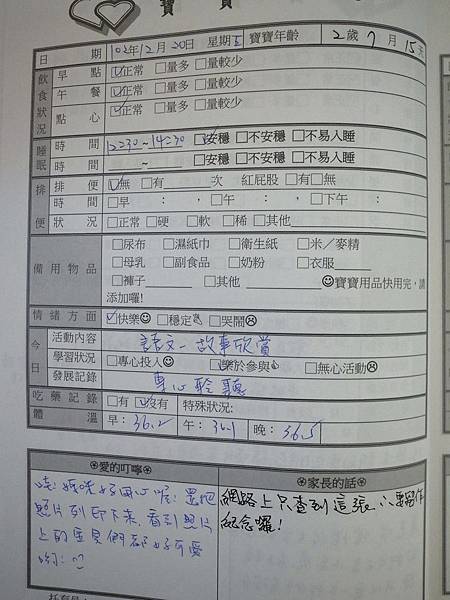 寶 寶
日 期 102年12月20日 星期五 寶寶年齡 2歲7月15天
飲食狀況 早點 ☑正常 □量多 □量較少
午餐 ☑正常 □量多 □量較少
點心 ☑正常 □量多 □量較少
睡眠 時間 12:30~14:30 ☑安穩 □不安穩 □不易入睡
時間 ___~___ □安穩 □不安穩 □不易入睡
排便 排便 ☑無 □有___次 紅屁股 □有□無
時間 □早 : ,□午 : ,□下午 :
狀況 □正常 □硬 □軟 □稀 □其他
備用物品 □尿布 □濕紙巾 □衛生紙 □米/麥精
□母乳 □副食品 □奶粉 □衣服
□褲子 □其他 ☺寶寶用品快用完,請
添加囉!
情緒方面 ☑快樂☺ □穩定 □哭鬧☹
今日 活動內容 語文-故事欣賞
學習狀況 □專心投入☺ □樂於參與 □無心活動☹
發展記錄 專心聆聽
吃藥記錄 □有 ☑沒有 特殊狀況:
體溫 早:36.2 午:36.1 晚:36.5
愛的叮嚀
哇!媽咪好用心喔!還把
照片列印下來,看到照片
上的寶貝們都好可愛
喲!
家長的話
網路上只查到這張,要留作
紀念囉!